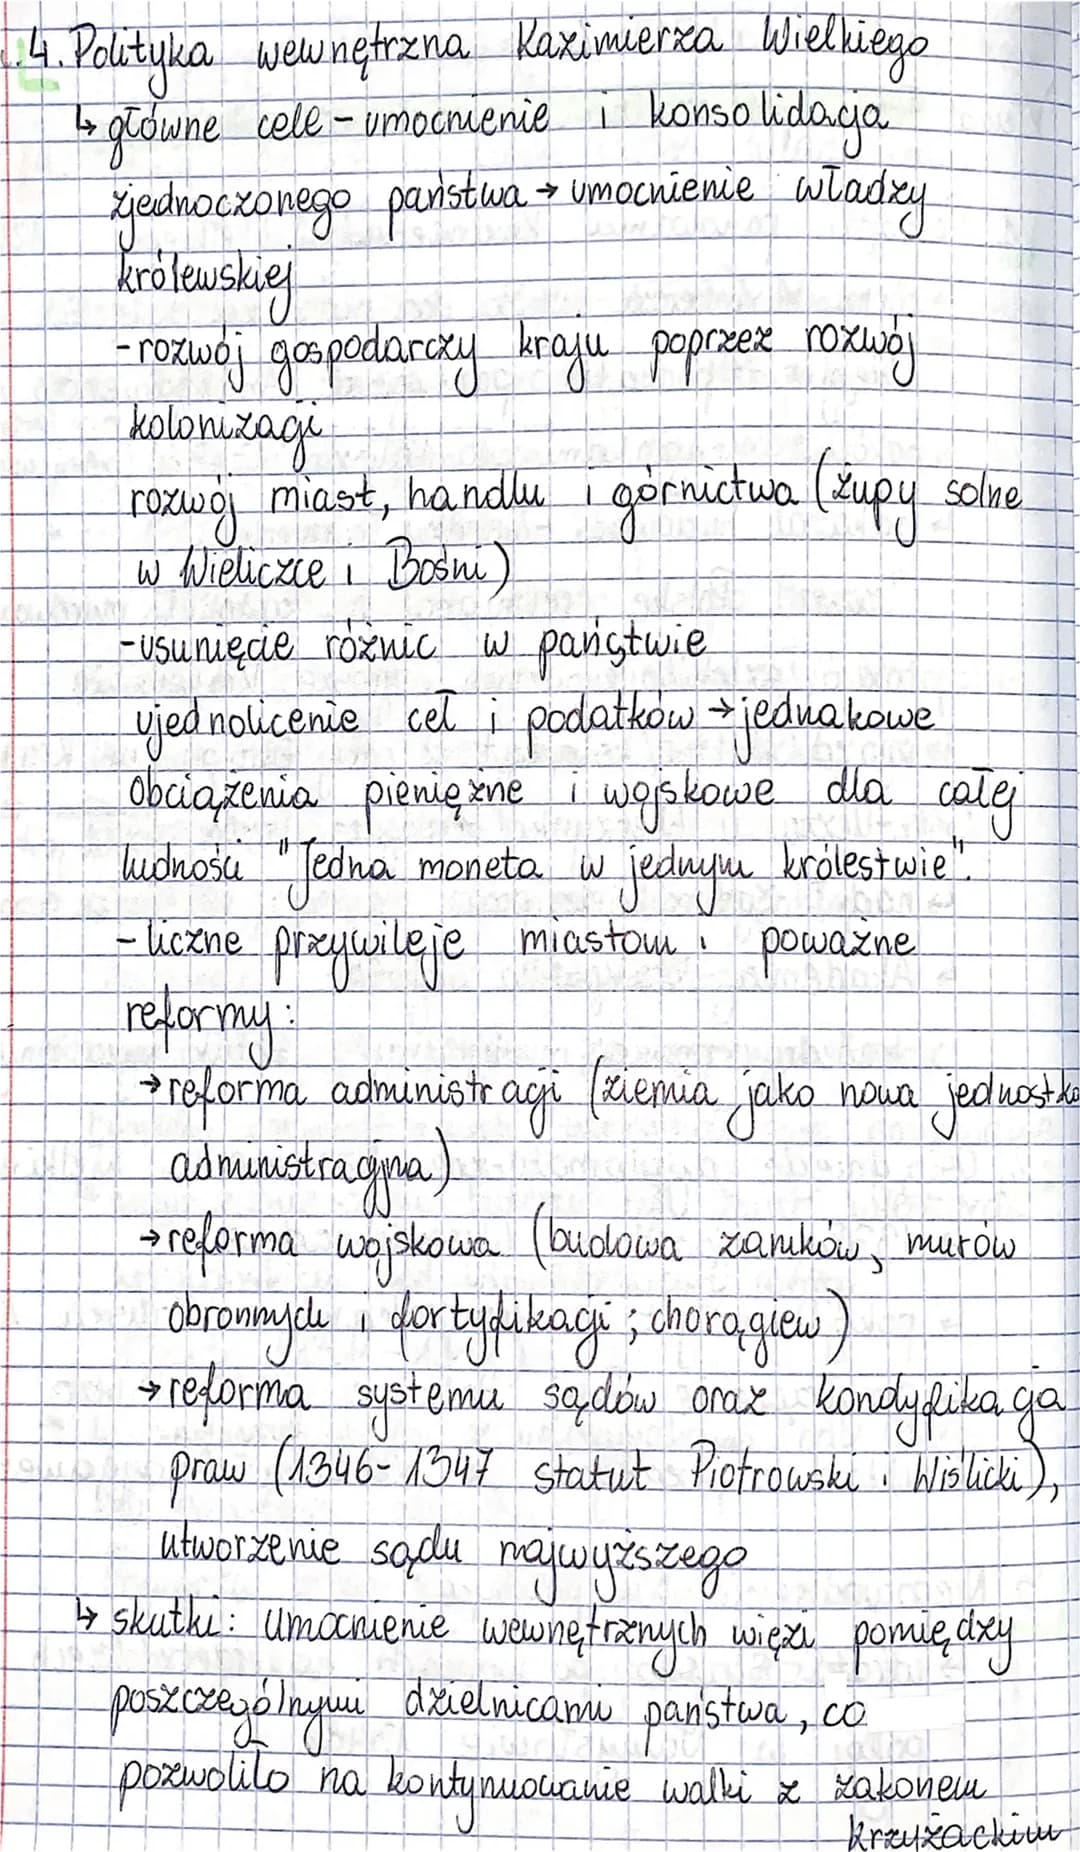 4. Polityka wewnętrzna Kazimierza Wielkiego
↳ główne cele - umocnienie i konsolidacja
zjednoczonego państwa → umocnienie władzy
królewskiej
- rozwój gospodarczy kraju poprzez rozwój
kolonizacji
rozwój miast, handlu i górnictwa (żupy solne
w Wieliczce i Bośni)
- usunięcie różnic w państwie
ujednolicenie ceł i podatków → jednakowe
obciążenia pieniężne i wojskowe dla całej
ludności "Jedna moneta w jednym królestwie".
- liczne przywileje miastom i poważne
reformy:
→ reforma administracji (ziemia jako nowa jednostka
administracyjna)
→ reforma wojskowa (budowa zamków, murów
obronnych i fortyfikacji; chorągiew)
→ reforma systemu sądów oraz kondyfikacja
praw (1346-1347 statut Piotrowski i Wiślicki),
utworzenie sądu najwyższego
↳ skutki: umocnienie wewnętrznych więzi pomiędzy
poszczególnymi dzielnicami państwa, co
pozwoliło na kontynuowanie walki z zakonem
krzyżackim